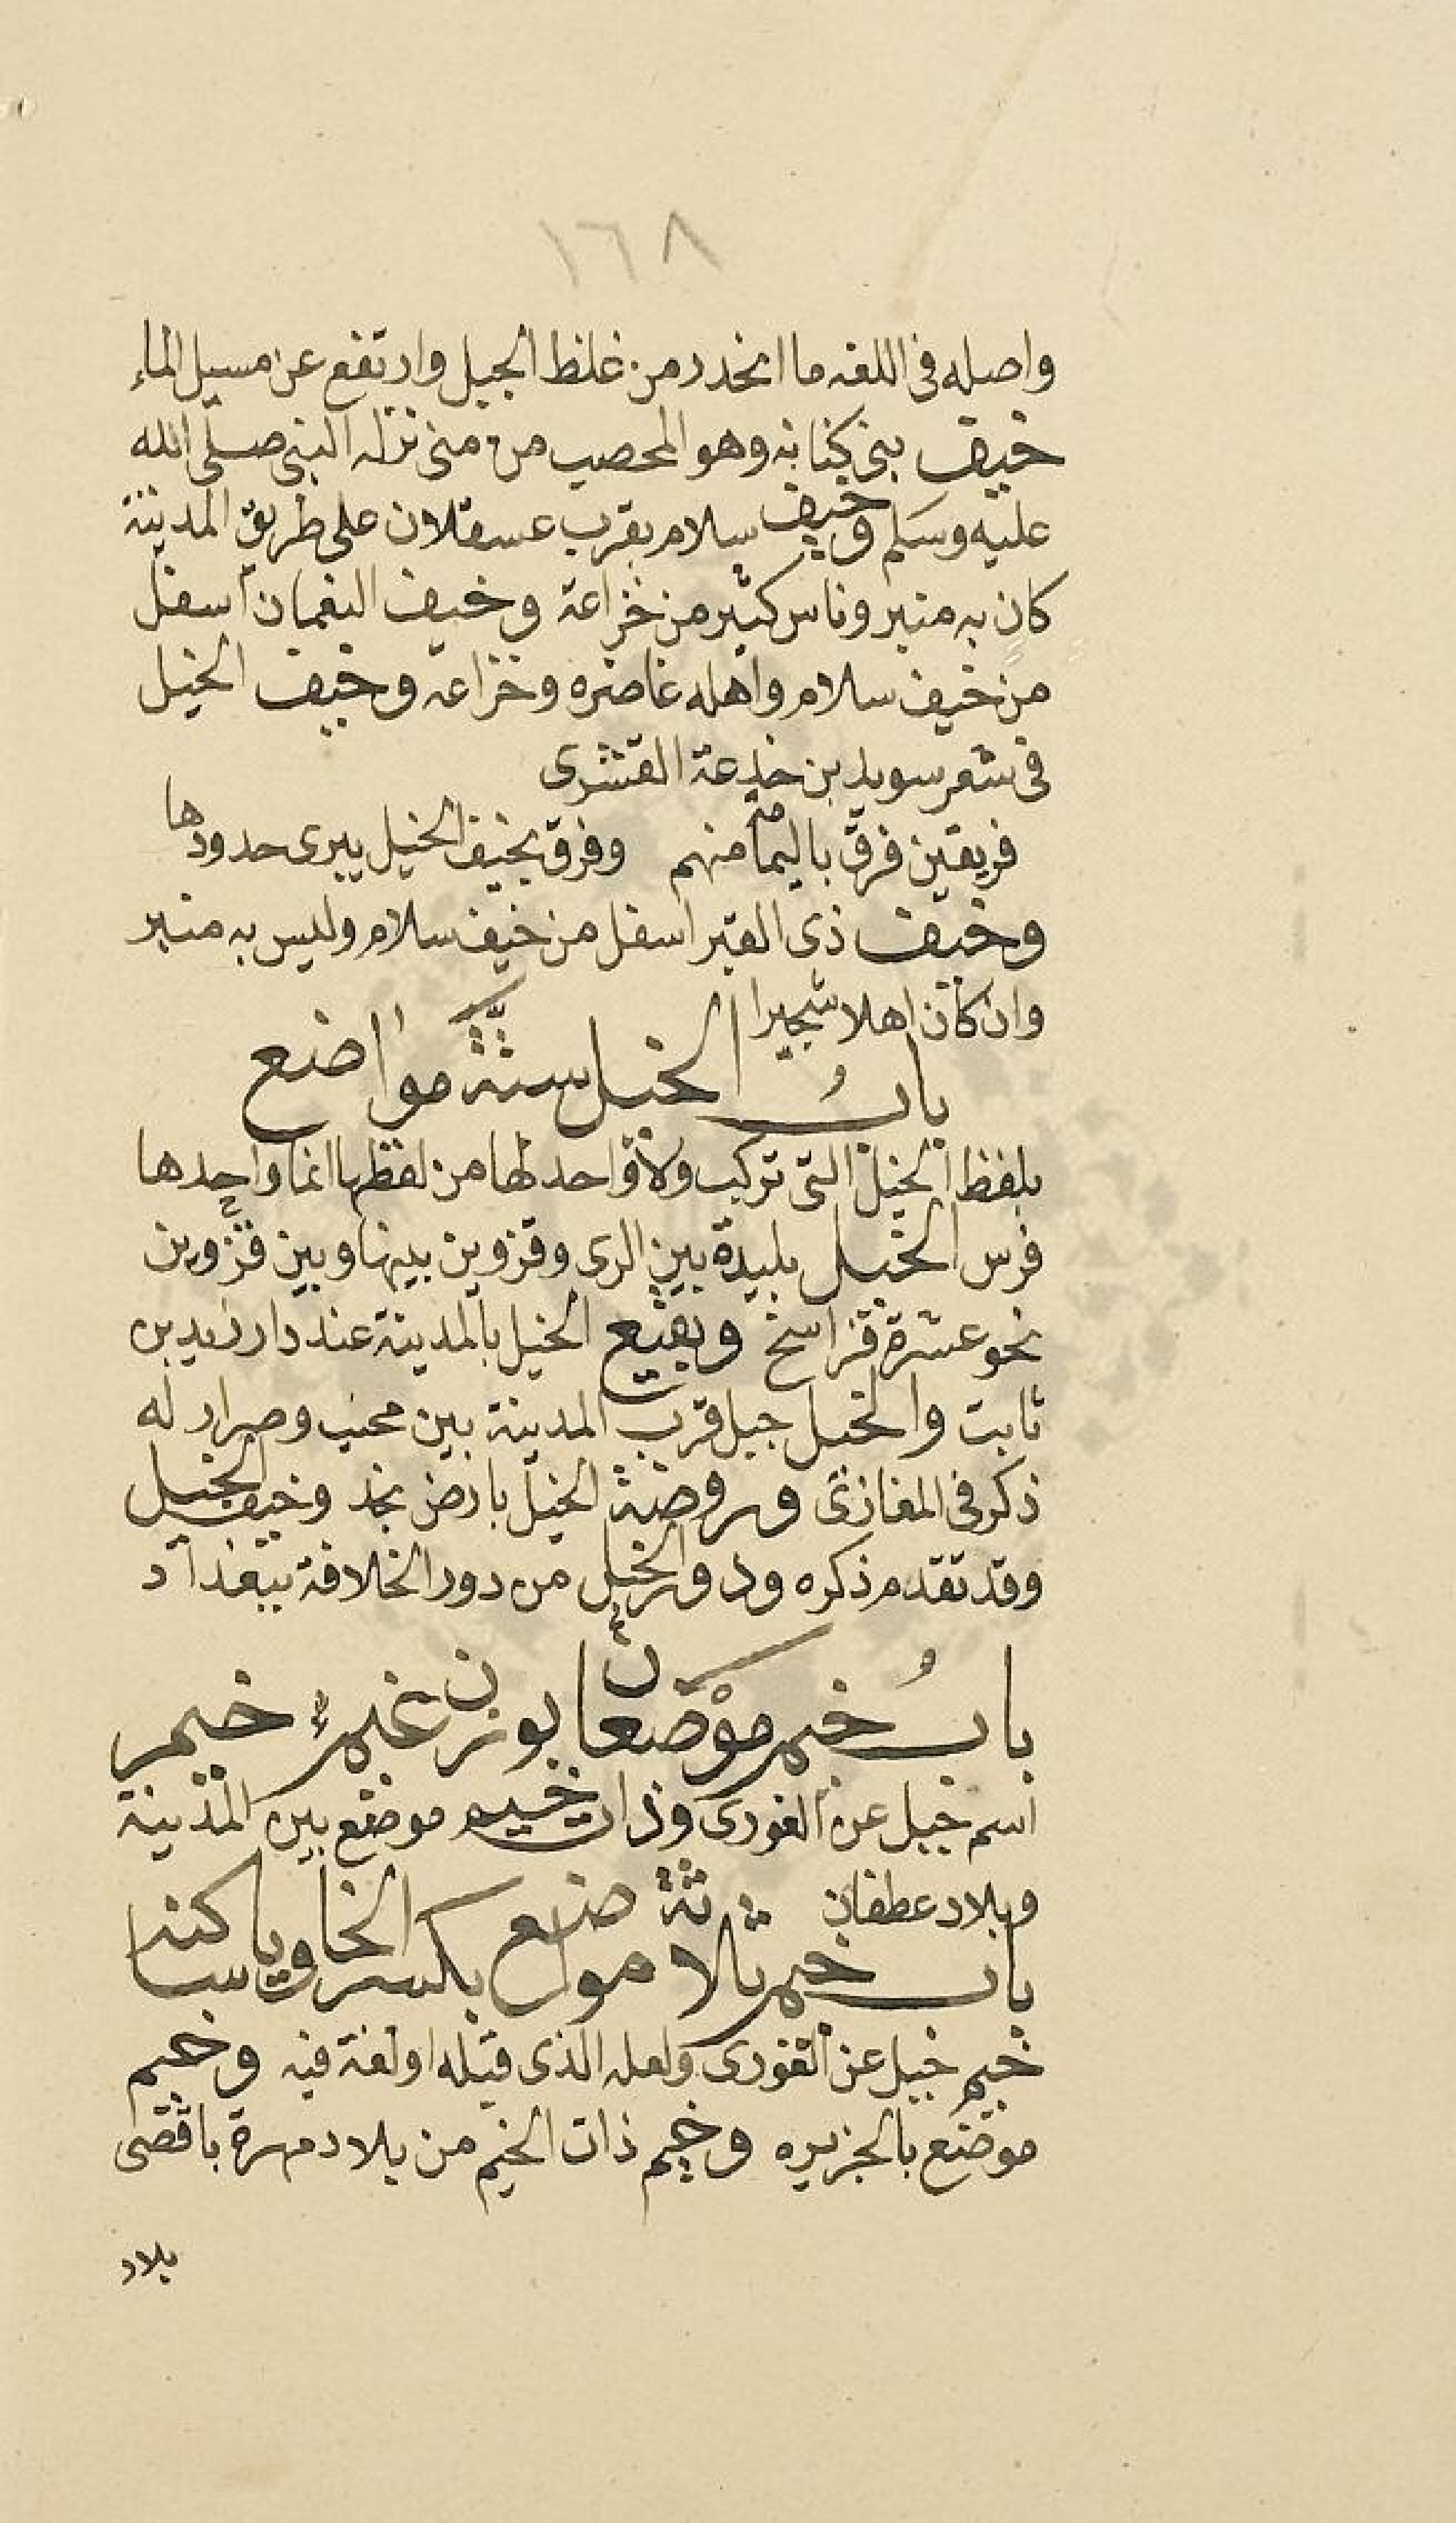 ١٦٨
واصله فى اللغه ما انحدر من غلظ الجبل وارتفع عن مسيل الماء
خيف بنى كنانه وهو المحصب من منى نزله النبى صلى الله
عليه وسلم وخيف سلام بقرب عسقلان على طريق المدينة
كان به منبر وناس كثير من خزاعة وخيف النعمان اسفل
من خيف سلام واهله غاضره وخزاعه وخيف الخيل
فى شعر سويد بن خدعة القشرى
فريقين فرق باليمامة منهم وفرق بخيف الخيل يبرى حدودها
وخيف ذى القبر اسفل من خيف سلام وليس به منبر
وان كان اهلا شجيرا
باب الخيل ستة مواضع
بلفظ الخيل التى تركب ولا واحد لها من لفظها انما واحدها
فرس الخيل بليدة بين الرى وقزوين بينها وبين قزوين
نحو عشرة فراسخ وبقيع الخيل بالمدينة عند دار زيد بن
ثابت والخيل جبل قرب المدينة بين محنب وصرار له
ذكر فى المغازى وروضة الخيل بارض نجد وخيف الخيل
وقد تقدم ذكره ودور الخيل من دور الخلافة ببغداد
باب خيم موضعان بوزن غيره خيمر
اسم جبل عن الغورى وذات خيم موضع بين المدينة
وبلاد عطفان
باب خيم ثلاثة مواضع بكسر الخا ويا ساكنه
خيم جبل عن الغورى ولعله الذى قبله او لغة فيه وخيم
موضع بالجزيره وخيم ذات الخيم من بلاد مهرة باقصى
بلاد